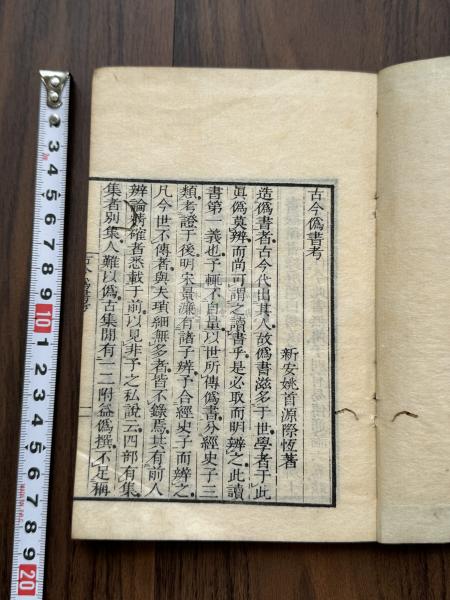 古今僞書考
新安姚首源際恆著
造僞書者古今代出其人故僞書滋多于世學者于此
眞僞莫辨而尚可謂之讀書乎是必取而明辨之此讀
書第一義也予輒不自量以世所傳僞書分經史子三
類考證于後明宋景濂有諸子辨予合經史子而辨之
凡今世不傳者與夫瑣細無多者皆不錄焉其有前人
辨論精確者悉載于前以見非予之私說云四部有集
集者別集人難以僞古集閒有一二附益僞撰不足稱
2
3
4
5
6
7
8
9
10
1
2
3
4
5
6
7
8
9
20